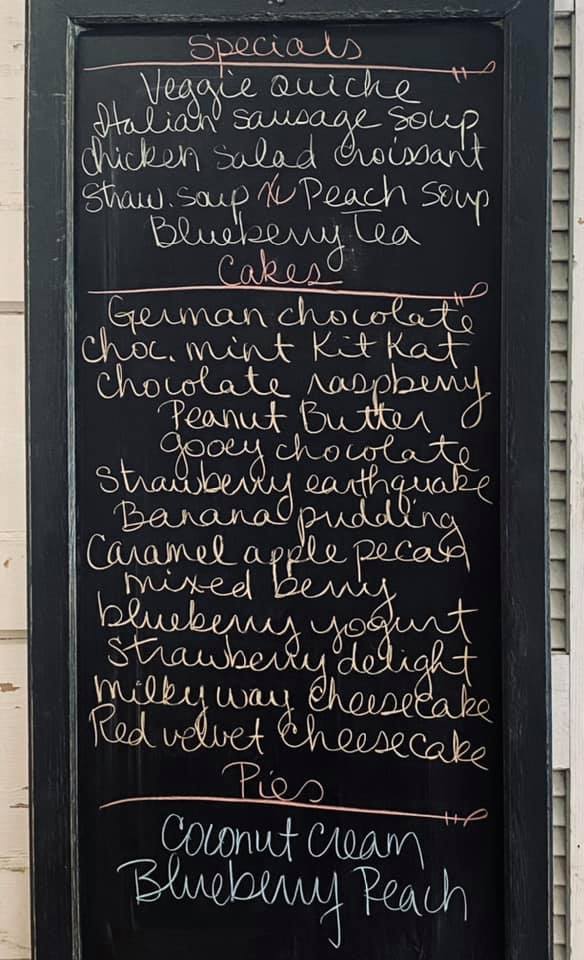 Specials
Veggie Quiche
Italian sausage Soup
Chicken Salad Croissant
Straw. soup Peach Soup
Blueberry Tea
Cakes
German chocolate
Choc. mint Kit Kat
Chocolate raspberry
Peanut Butter
gooey chocolate
Strawberry earthquake
Banana pudding
Caramel apple pecan
mixed berry
blueberry yogurt
Strawberry delight
milky way cheesecake
Red velvet cheesecake
Pies
Coconut Cream
Blueberry Peach